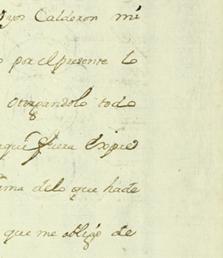 Calderon mi
por el presente lo
otorgandolo todo
fuera Expre
delo que hade
que me obligò de